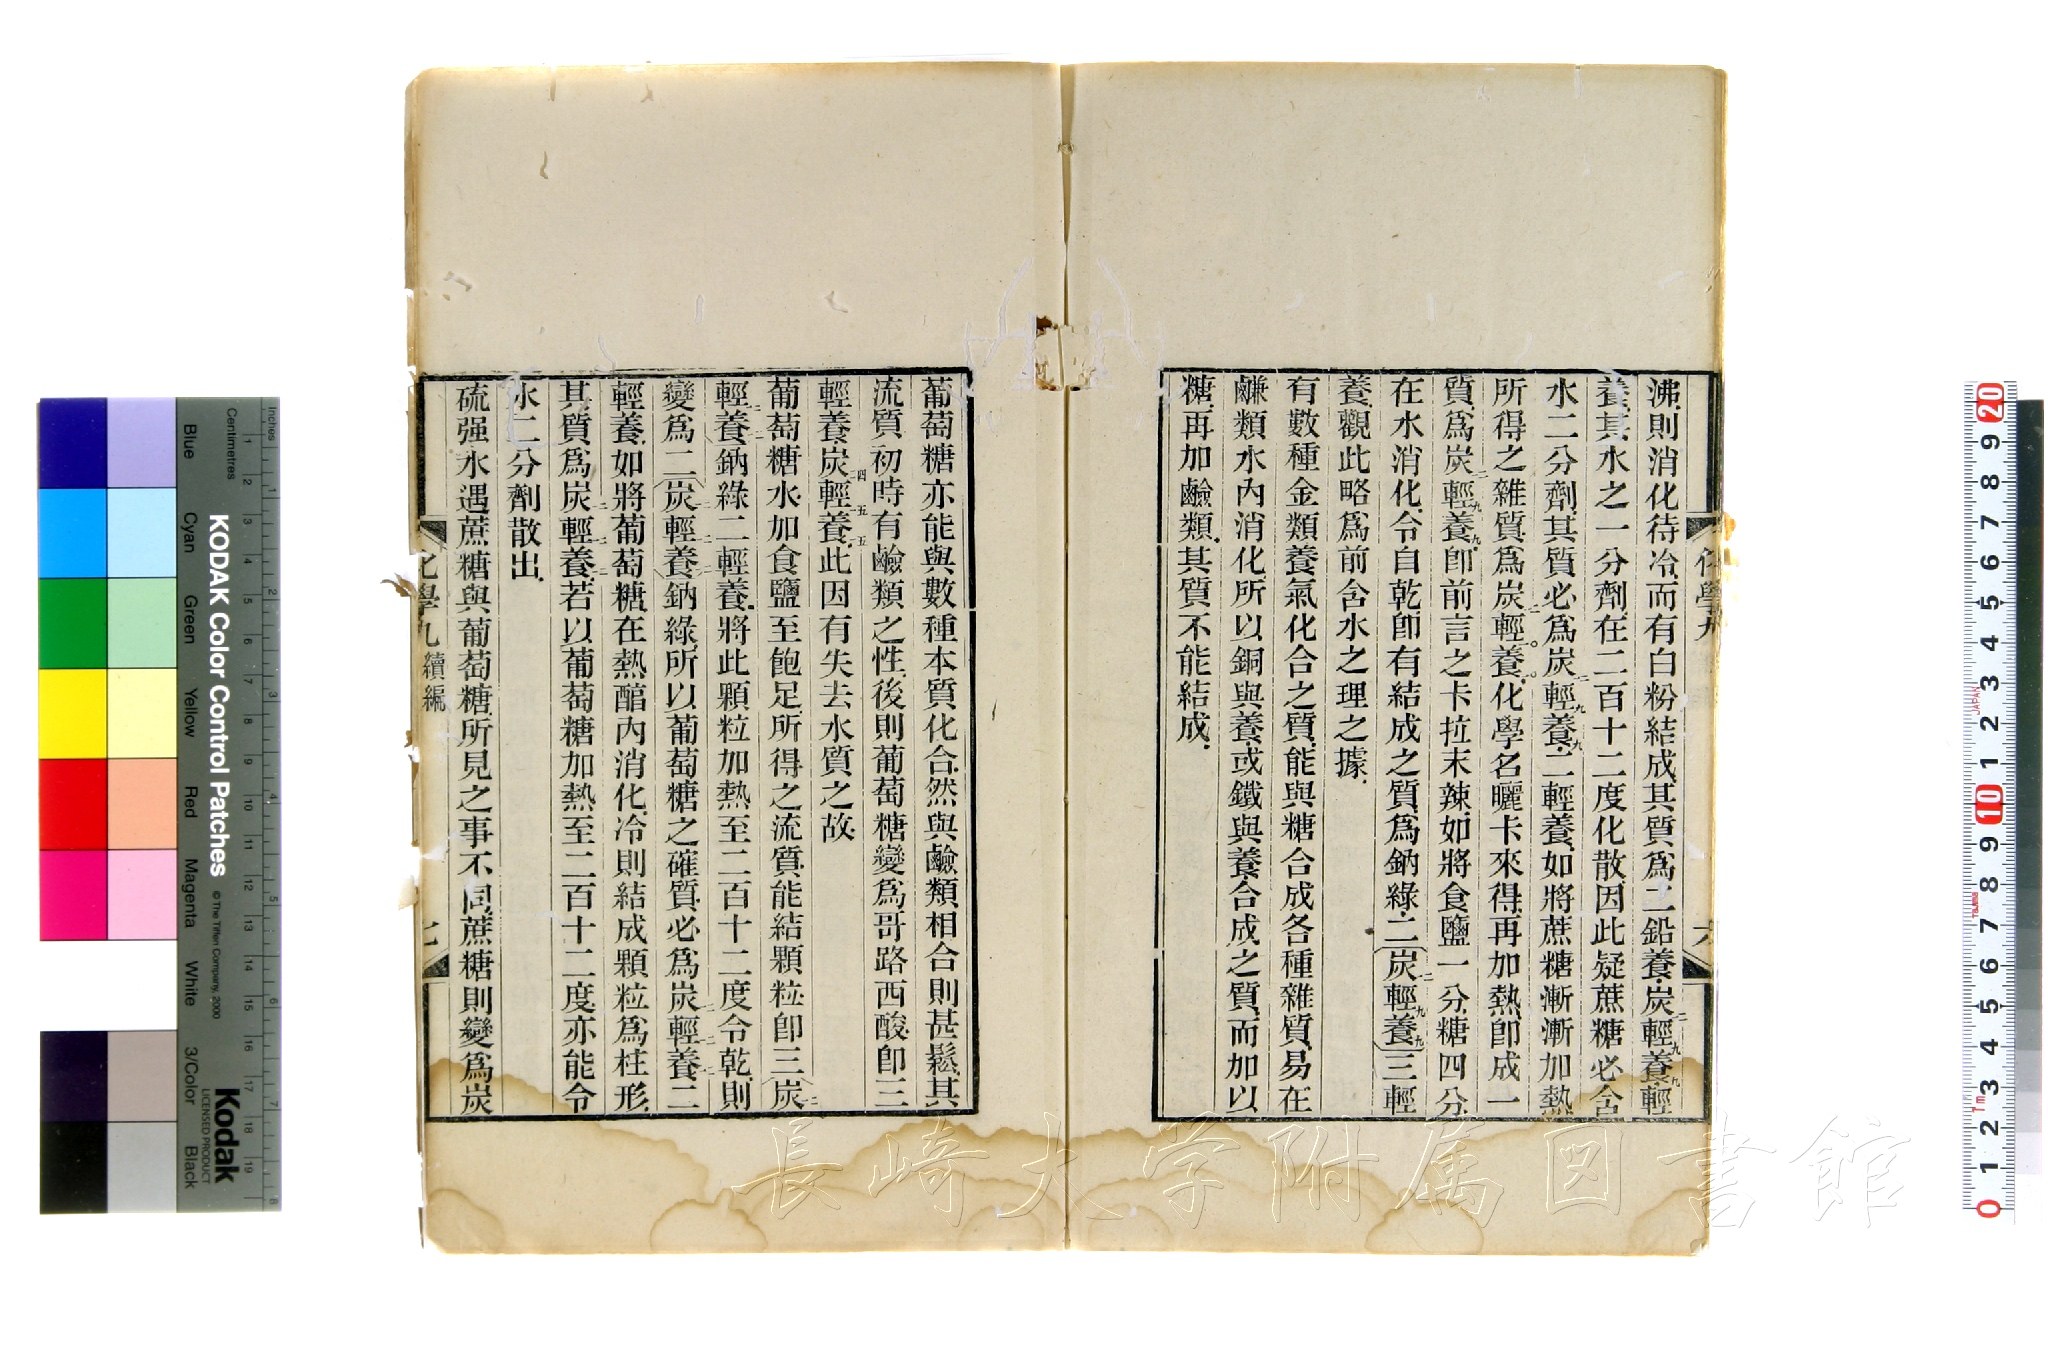 沸則消化待冷而有白粉結成其質爲二鉛養炭輕養輕
養其水之一分劑在二百十二度化散因此疑蔗糖必含
水二分劑其質必爲炭輕養二輕養如將蔗糖漸漸加熱
所得之雜質爲炭輕養化學名曬卡來得再加熱卽成一
質爲炭輕養卽前言之卡拉末辣如將食鹽一分糖四分
在水消化令自乾卽有結成之質爲鈉綠二炭輕養三輕
養觀此略爲前含水之理之據
有數種金類養氣化合之質能與糖合成各種雜質易在
鹻類水內消化所以銅與養或鐵與養合成之質而加以
糖再加鹼類其質不能結成
化學九
六
葡萄糖亦能與數種本質化合然與鹼類相合則甚鬆其
流質初時有鹼類之性後則葡萄糖變爲哥路西酸卽三
輕養炭輕養此因有失去水質之故
葡萄糖水加食鹽至飽足所得之流質能結顆粒卽三炭
輕養鈉綠二輕養將此顆粒加熱至二百十二度令乾則
變爲二炭輕養鈉綠所以葡萄糖之確質必爲炭輕養二
輕養如將葡萄糖在熱醕內消化冷則結成顆粒爲柱形
其質爲炭輕養若以葡萄糖加熱至二百十二度亦能令
水二分劑散出
硫强水遇蔗糖與葡萄糖所見之事不同蔗糖則變爲炭
化學九續編
七
長崎大学附属図書館
KODAK Color Control Patches
© The Tiffen Company, 2000
Kodak
LICENSED PRODUCT
Inches
Centimetres
Blue
Cyan
Green
Yellow
Red
Magenta
White
3/Color
Black
1 2 3 4 5 6 7 8 9 10 11 12 13 14 15 16 17 18 19
1 2 3 4 5 6 7 8
0 1 2 3 4 5 6 7 8 9 10 1 2 3 4 5 6 7 8 9 20
JAPAN
Tajima
1m